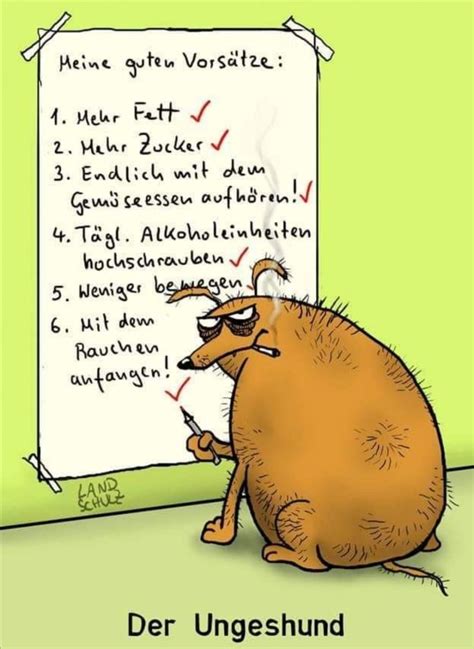 Meine guten Vorsätze:
1. Mehr Fett ✓
2. Mehr Zucker ✓
3. Endlich mit dem
Gemüseessen aufhören! ✓
4. Tägl. Alkoholeinheiten
hochschrauben ✓
5. Weniger bewegen ✓
6. Mit dem
Rauchen
anfangen! ✓
LAND
SCHULZ
Der Ungeshund